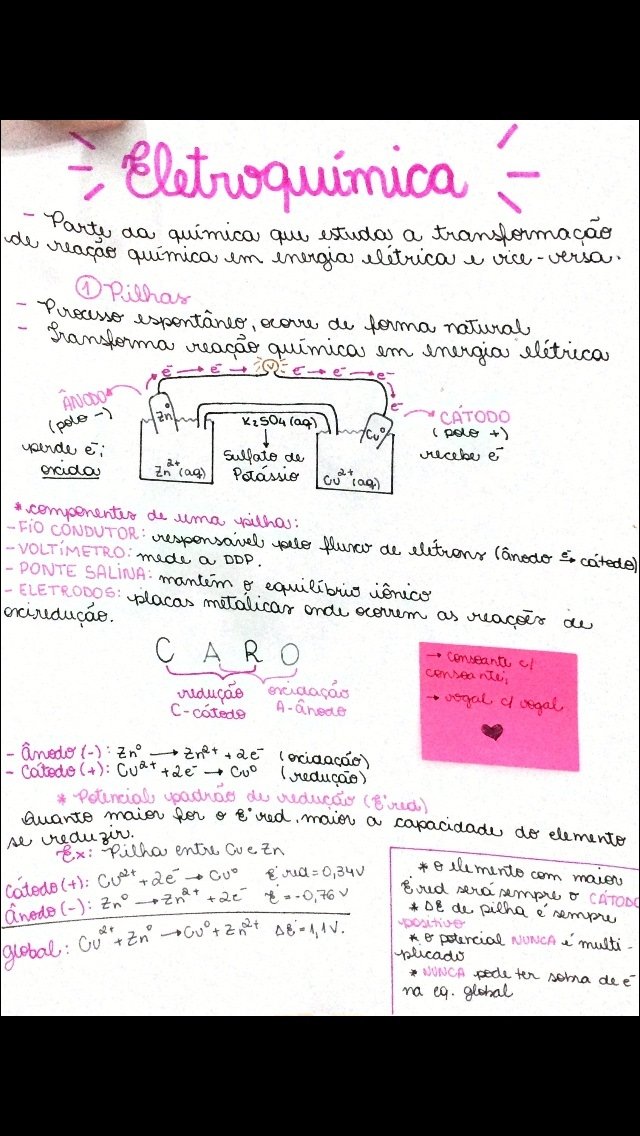 Eletroquímica
- Parte da química que estuda a transformação
de reação química em energia elétrica e vice-versa.
① Pilhas
- Processo espontâneo, ocorre de forma natural
- Transforma reação química em energia elétrica
e⁻ → e⁻ → V e⁻ → e⁻ → e⁻
e⁻
ÂNODO
(polo -)
perde e⁻;
oxida
Zn⁰
Zn²⁺(aq)
K₂SO₄(aq)
↓
Sulfato de
Potássio
Cu⁰
Cu²⁺(aq)
CÁTODO
(polo +)
recebe e⁻
* componentes de uma pilha:
- FIO CONDUTOR: responsável pelo fluxo de elétrons (ânodo e⁻→ cátodo)
- VOLTÍMETRO: mede a DDP.
- PONTE SALINA: mantém o equilíbrio iônico
- ELETRODOS: placas metálicas onde ocorrem as reações de
oxiredução.
C A R O
redução oxidação
C-cátodo A-ânodo
→ consoante c/
consoante;
→ vogal c/ vogal
- Ânodo (-): Zn⁰ → Zn²⁺ + 2e⁻ (oxidação)
- Cátodo (+): Cu²⁺ + 2e⁻ → Cu⁰ (redução)
* Potencial padrão de redução (E°red)
Quanto maior for o E°red, maior a capacidade do elemento
se reduzir.
Ex: Pilha entre Cu e Zn
Cátodo (+): Cu²⁺ + 2e⁻ → Cu⁰ E°red = 0,34V
Ânodo (-): Zn⁰ → Zn²⁺ + 2e⁻ E° = -0,76V
global: Cu²⁺ + Zn⁰ → Cu⁰ + Zn²⁺ ΔE° = 1,1V.
* o elemento com maior
E°red será sempre o CÁTODO
* ΔE de pilha é sempre
positivo
* o potencial NUNCA é multi-
plicado
* NUNCA pode ter sobra de e⁻
na eq. global